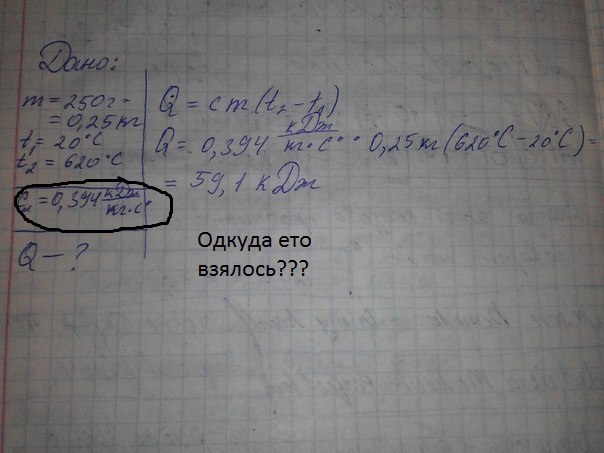 Дано:
m = 250г =
= 0,25 кг
t₁ = 20°C
t₂ = 620°C
= 0,394 кДж/кг·C°
Q — ?
Q = cm(t₂ - t₁)
Q = 0,394 кДж/кг·C° · 0,25кг(620°C - 20°C) =
= 59,1 кДж
Одкуда ето
взялось???